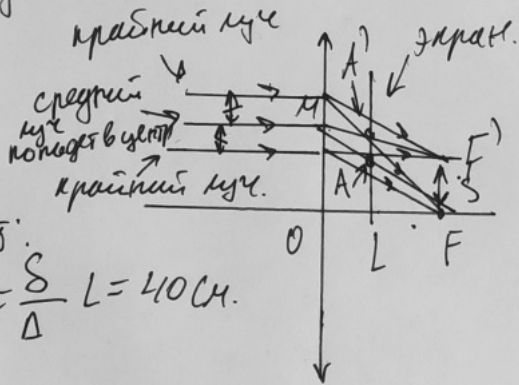 крайний луч
экран.
средний
луч
попадет в центр
крайний луч.
A'
M
F'
A
δ
O
L
F
= δ/Δ L = 40 см.